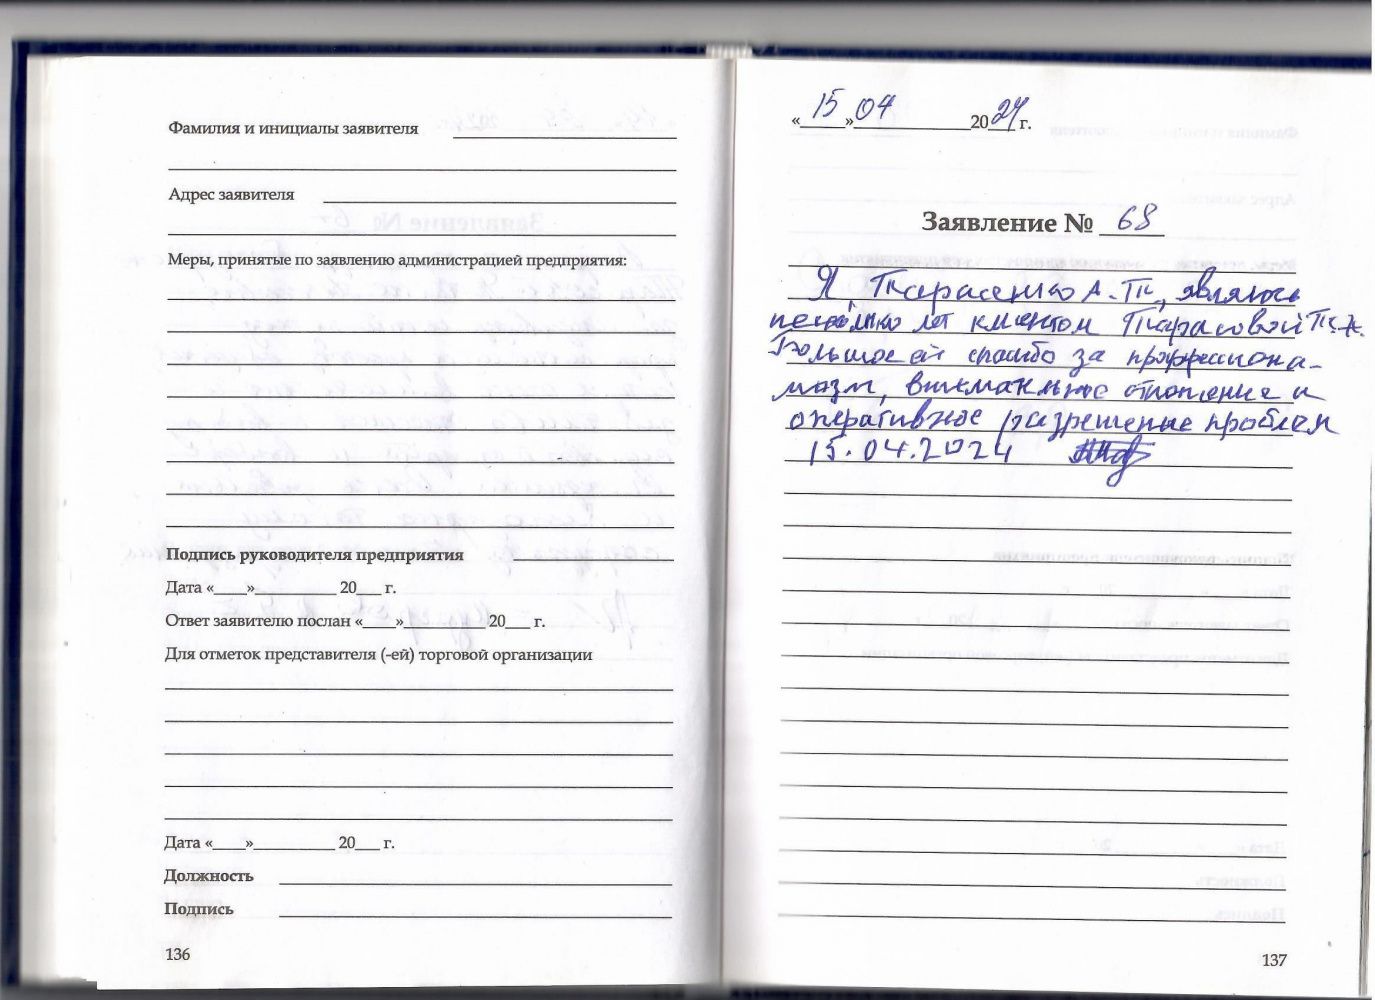 Фамилия и инициалы заявителя
Адрес заявителя
Меры, принятые по заявлению администрацией предприятия:
Подпись руководителя предприятия
Дата «____»__________ 20___ г.
Ответ заявителю послан «____»__________ 20___ г.
Для отметок представителя (-ей) торговой организации
Дата «____»__________ 20___ г.
Должность
Подпись
136
«15» 04 2024 г.
Заявление № 68
Я, Тарасенко А. П., являюсь
несколько лет клиентом Тарасовой
Большое ей спасибо за профессиона-
лизм, внимательное отношение и
оперативное разрешение проблем
15.04.2024
137